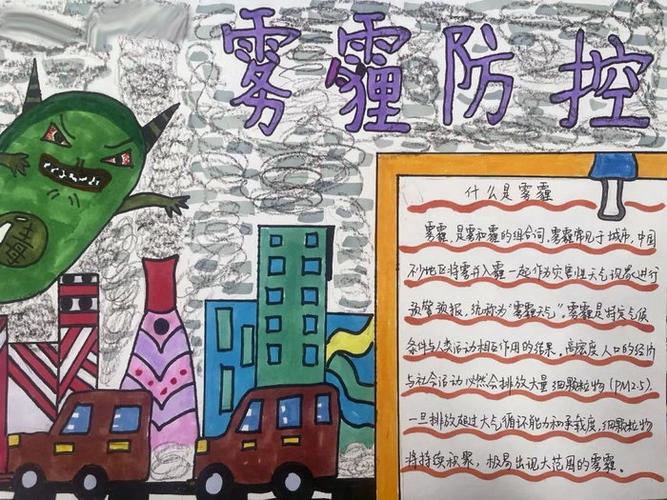 雾霾防控
什么是雾霾
雾霾,是雾和霾的组合词,雾霾常见于城市,中国
不少地区将雾并入霾一起作为灾害性天气现象进行
预警预报,统称为“雾霾天气”雾霾是特定气候
条件与人类活动相互作用的结果,高密度人口的经济
与社会活动必然会排放大量细颗粒物(PM2.5).
一旦排放超过大气循环能力和承载度,细颗粒物
将持续积聚,极易出现大范围的雾霾。